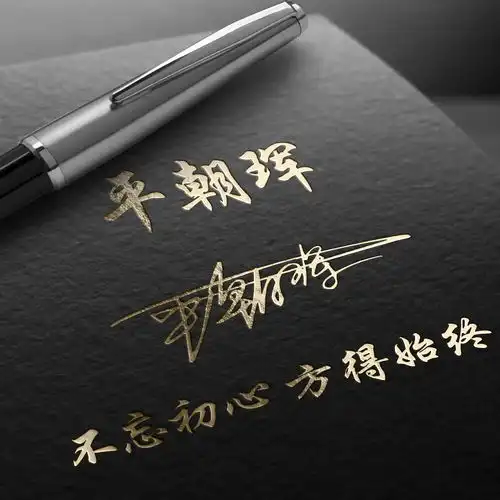 平朝珲
不忘初心 方得始终